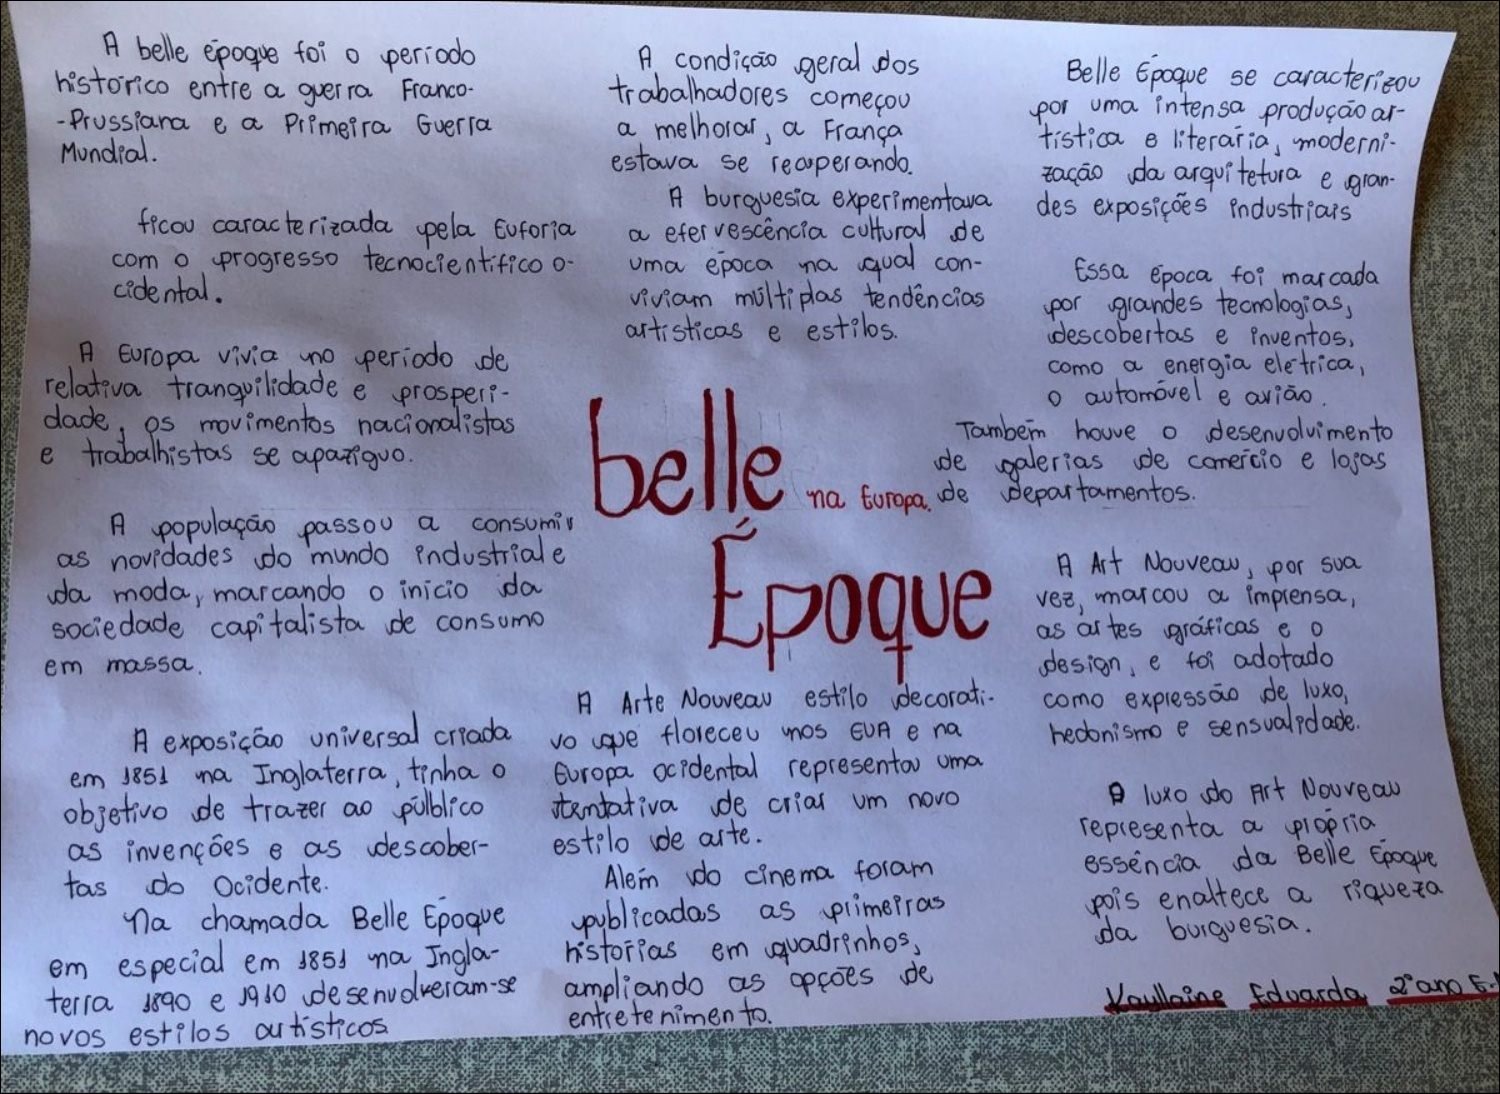 A belle época foi o período
histórico entre a guerra Franco-
-Prussiana e a Primeira Guerra
Mundial.
ficou caracterizada pela Euforia
com o progresso tecnocientífico o-
cidental.
A Europa vivia no período de
relativa tranquilidade e prosperi-
dade, os movimentos nacionalistas
e trabalhistas se apaziguo.
A população passou a consumir
as novidades do mundo industrial e
da moda, marcando o início da
sociedade capitalista de consumo
em massa.
A exposição universal criada
em 1851 na Inglaterra, tinha o
objetivo de trazer ao púlblico
as invenções e as descober-
tas do Ocidente.
Na chamada Belle Époque
em especial em 1851 na Ingla-
terra 1890 e 1910 desenvolveram-se
novos estilos artísticos
A condição geral dos
trabalhadores começou
a melhorar, a França
estava se recuperando.
A burguesia experimentava
a efervescência cultural de
uma época na qual con-
viviam múltiplas tendências
artísticas e estilos.
belle na Europa.
Époque
A Arte Nouveau estilo decorati-
vo que floreceu nos EUA e na
Europa ocidental representou uma
tentativa de criar um novo
estilo de arte.
Além do cinema foram
publicadas as primeiras
histórias em quadrinhos,
ampliando as opções de
entretenimento.
Belle Époque se caracterizou
por uma intensa produção ar-
tística e literária, moderni-
zação da arquitetura e gran-
des exposições industriais
Essa época foi marcada
por grandes tecnologias,
descobertas e inventos,
como a energia elétrica,
o automóvel e avião.
Também houve o desenvolvimento
de galerias de comércio e lojas
de departamentos.
A Art Nouveau, por sua
vez, marcou a imprensa,
as artes gráficas e o
design, e foi adotado
como expressão de luxo,
hedonismo e sensualidade.
O luxo do Art Nouveau
representa a própria
essência da Belle Époque
pois enaltece a riqueza
da burguesia.
Kayllaine Eduarda 2º ano